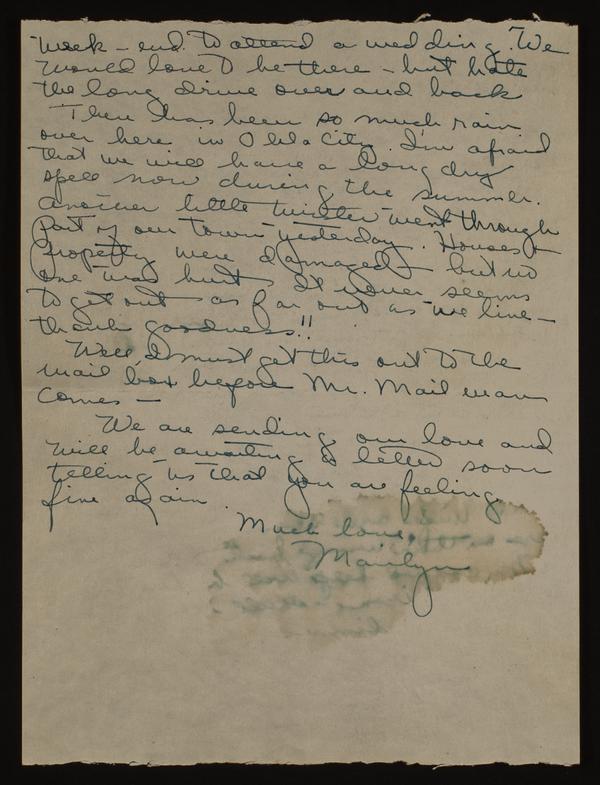 week - end to attend a wedding. We
would love to be there - but hate
the long drive over and back
Then has been so much rain
over here in Okla City. I'm afraid
that we will have a long dry
spell now during the summer.
Another little twister went through
part of our town yesterday. Houses +
property were damaged - but no
one was hurt. It never seems
to get out as far out as we live -
thank goodness!!
Well, I must get this out to the
mail box before Mr. Mail man
comes -
We are sending our love and
will be awaiting a letter soon
telling us that you are feeling
fine again.
Much love,
Marilyn